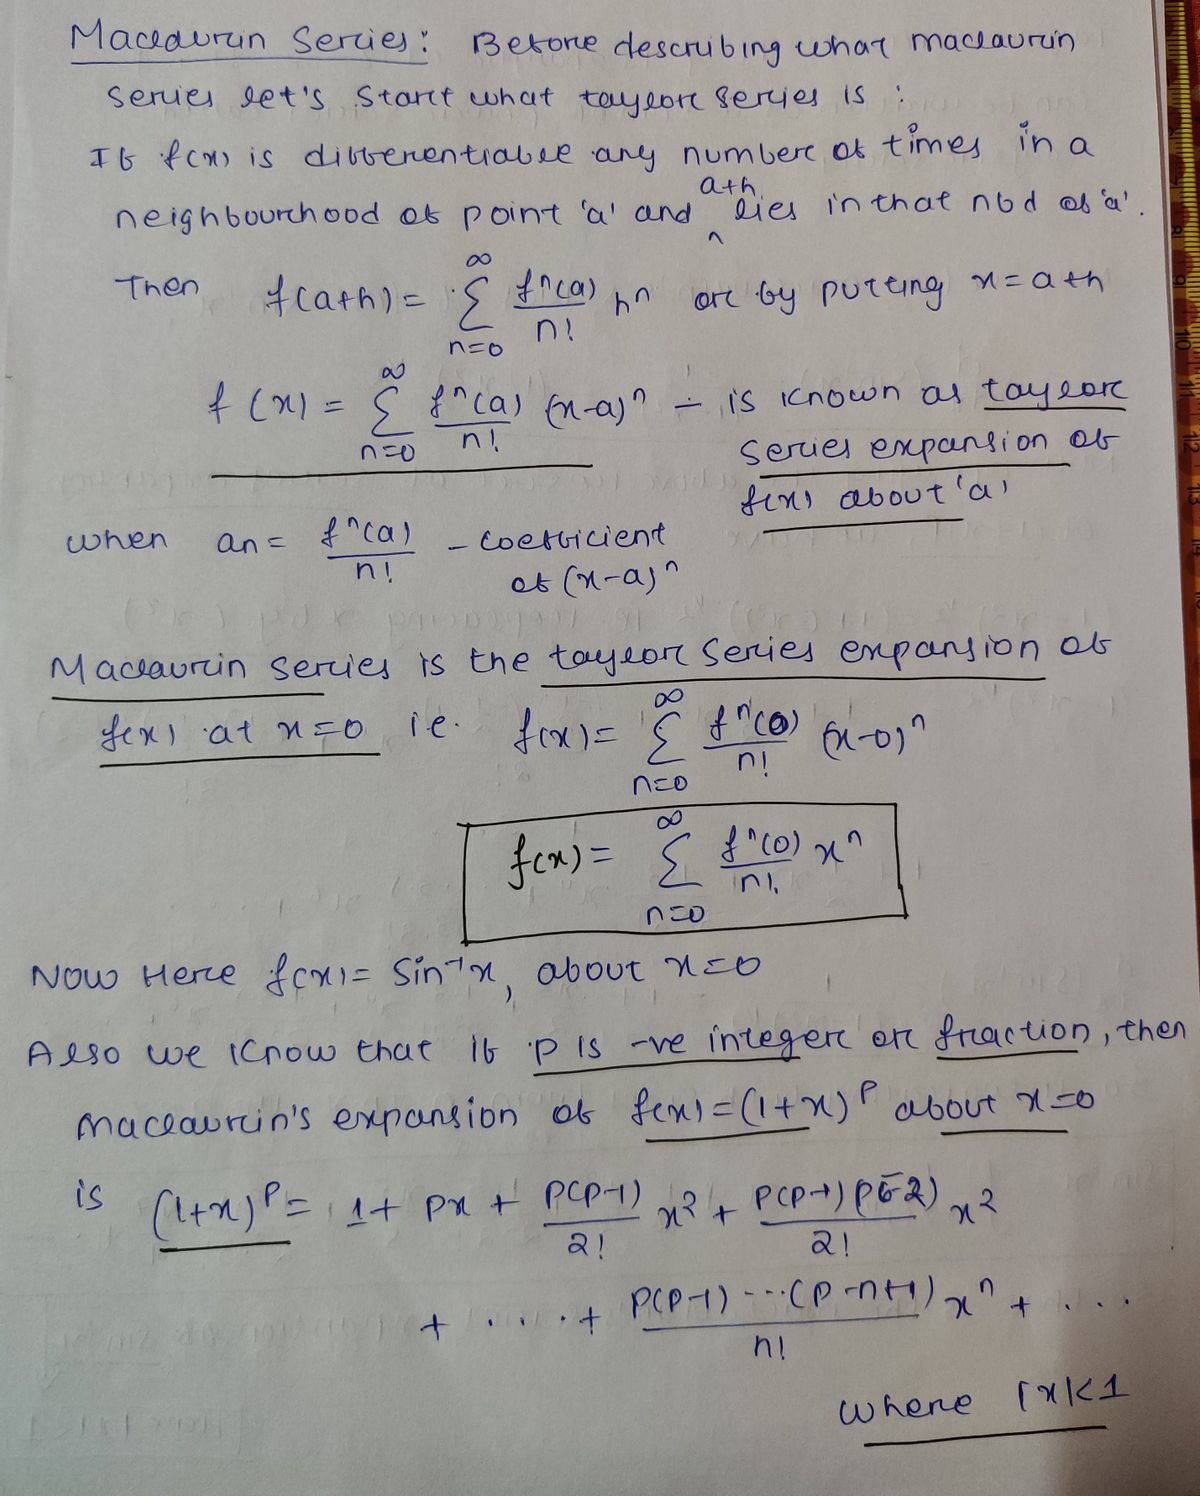 Maclaurin Series: Before describing what maclaurin
series let's start what taylor series is :
If f(x) is differentiable any number of times in a
neighbourhood of point 'a' and a+h lies in that nbd of 'a'.
Then f(a+h) = ∞ Σ n=0 fⁿ(a)/n! hⁿ or by putting x = a+h
f(x) = ∞ Σ n=0 fⁿ(a)/n! (x-a)ⁿ - is known as taylor
series expansion of
f(x) about 'a'
when an = fⁿ(a)/n! - coefficient
of (x-a)ⁿ
Maclaurin series is the taylor series expansion of
f(x) at x=0 i.e. f(x) = ∞ Σ n=0 fⁿ(0)/n! (x-0)ⁿ
f(x) = ∞ Σ n=0 fⁿ(0)/n! xⁿ
Now Here f(x) = Sin⁻¹x, about x=0
Also we know that if p is -ve integer or fraction, then
maclaurin's expansion of f(x) = (1+x)ᵖ about x=0
is (1+x)ᵖ = 1 + Px + P(P-1)/2! x² + P(P-1)(P-2)/2! x²
+ .... + P(P-1)---(P-n+1)/n! xⁿ + ...
where |x|<1